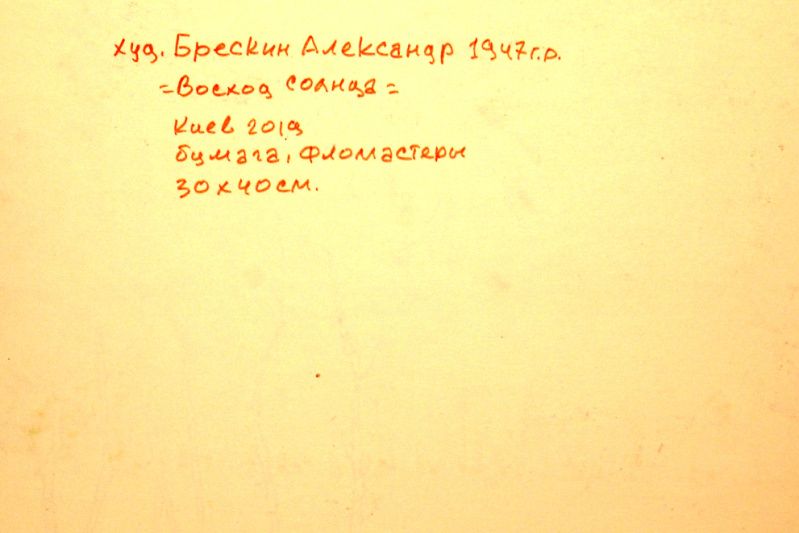 худ. Брескин Александр 1947г.р.
=Восход солнца=
Киев 2019
бумага, фломастеры
30х40см.